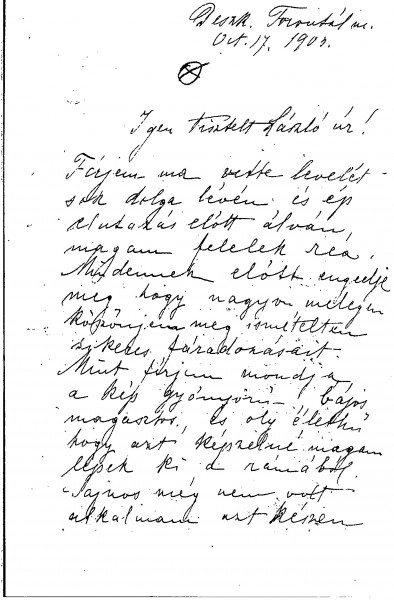 Deszk. Torontál m.
Oct. 17. 190
Igen Tisztelt László úr!
Férjem ma vette levelét
sok dolga lévén és ép
elutazás előtt álván,
magam felelek reá.
Mindennek előtt engedje
meg hogy nagyon melegen
köszönjem meg ismételten
sikeres fáradozásait.
Mint férjem mondja
a kép gyönyörű bájos
magasztos, és oly élethű
hogy azt képzelné magam
lépek ki a rámából.
Sajnos még nem volt
alkalmam azt készen